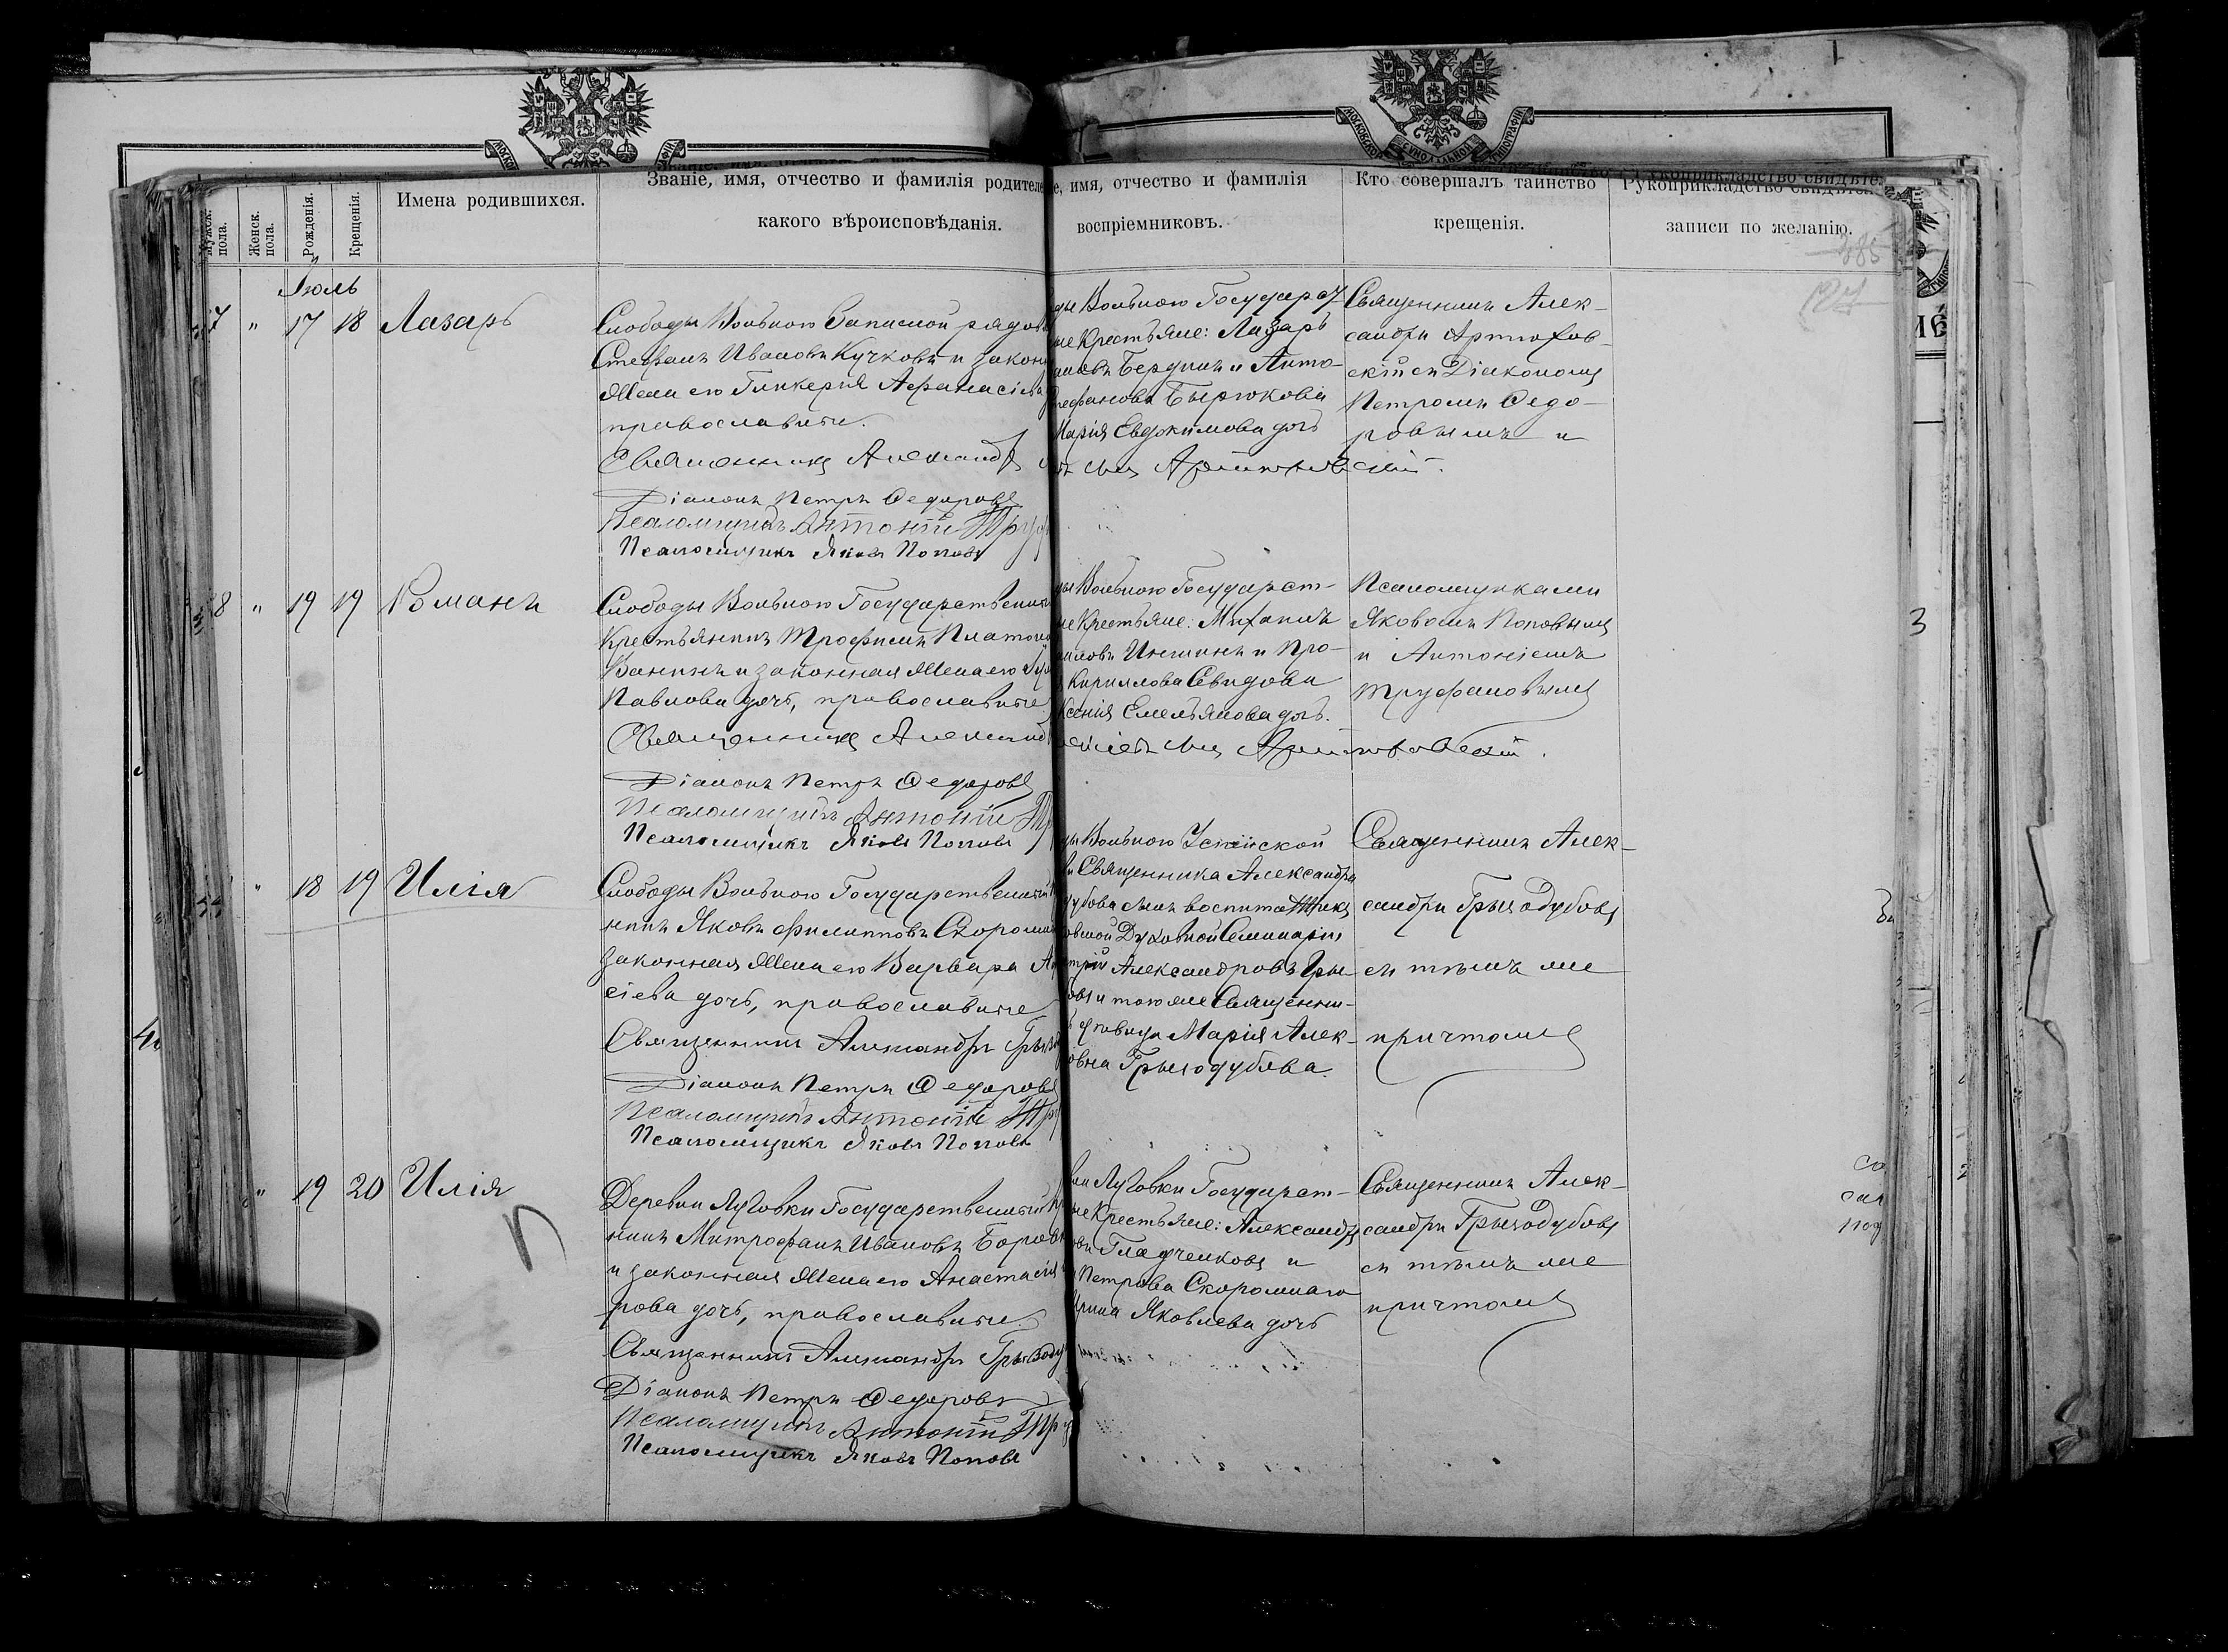 Мужск. пола.
Женск. пола.
Рожденія.
Крещенія.
Имена родившихся.
Званіе, имя, отчество и фамилія родителе
какого вѣроисповѣданія.
е, имя, отчество и фамилія
воспріемниковъ.
Кто совершалъ таинство
крещенія.
Рукоприкладство свидѣте
записи по желанію.
МОСКОВСКОЙ СѴНОДАЛЬНОЙ ТИПОГРАФІИ
385
Іюль
7 " 17 18 Лазарь
Слободы Вольною Запасной рядов
Стефанъ Ивановъ Кучковъ и закон
жена его Гликерія Афанасіева
православные.
Священникъ Александр
Діаконъ Петръ Ѳедоровъ
Псаломщикъ Антоній Труф
Псаломщикъ Яковъ Поповъ
ды Вольною Государст
ые Крестьяне: Лазарь
Бердинъ и Анто-
тефанова Бырюкова
Марія Евдокимова дочь
сынъ Артюховскій.
Священникъ Алек-
сандръ Артюхов-
скій съ Діакономъ
Петромъ Ѳедо-
ровымъ и
8 " 19 19 Романъ
Слободы Вольною Государственны
Крестьянинъ Трофимъ Платоно
Ванинъ и законная жена его
Павлова дочь, православные
Священникъ Александ
Діаконъ Петръ Ѳедоровъ
Псаломщикъ Антоній Тр
Псаломщикъ Яковъ Поповъ
ды Вольною Государст-
ые Крестьяне: Михаилъ
Иншинъ и Про-
Кириллова Свидова
Ксенія Емельянова дочь.
сынъ Артюховскій.
Псаломщиками
Яковомъ Поповымъ
и Антоніемъ
Труфановымъ
3
" 18 19 Илія
Слободы Вольною Государственный
нинъ Яковъ Филипповъ Скоромн
законная жена его Варвара
сіева дочь, православные
Священникъ Александръ Грызо
Діаконъ Петръ Ѳедоровъ
Псаломщикъ Антоній Тр
Псаломщикъ Яковъ Поповъ
ды Вольною Успѣнской
и Священника Александра
дубова сынъ воспитанникъ
овской Духовной Семинаріи
трій Александровъ Гры
овъ и тою же Священни-
дѣвица Марія Алек-
овна Грызодубова.
Священникъ Алек-
сандръ Грызодубовъ
съ тѣмъ же
причтомъ
" 19 20 Илія
Деревни Луговки Государственный Кр
нинъ Митрофанъ Ивановъ Боров
и законная жена его Анастасія
рова дочь, православные
Священникъ Александръ Грызоду
Діаконъ Петръ Ѳедоровъ
Псаломщикъ Антоній Тру
Псаломщикъ Яковъ Поповъ
ни Луговки Государст-
ые Крестьяне: Александръ
овъ Гладченковъ и
Петрова Скоромнаго
Ирина Яковлева дочь
Священникъ Алек-
сандръ Грызодубовъ
съ тѣмъ же
причтомъ